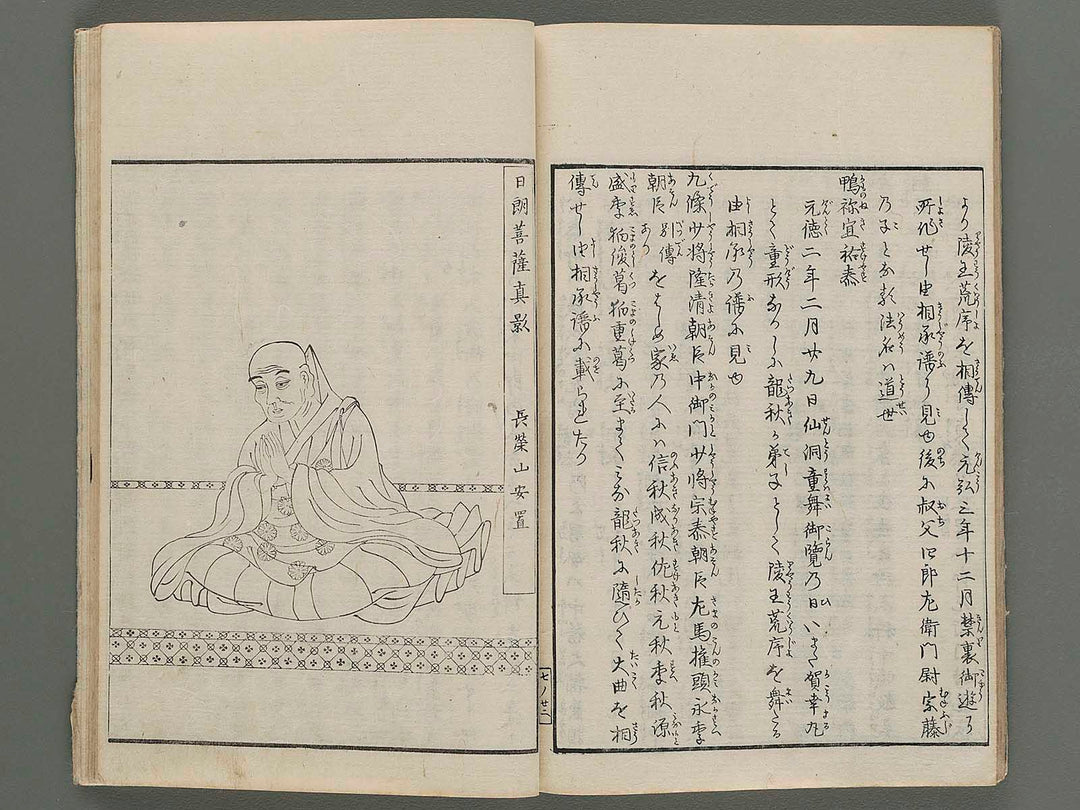 より陵王荒序を相傳して元弘三年十二月禁裏御遊に
所作せし由相承譜に見ゆ後に叔父四郎左衛門尉宗藤
乃子となる法名ハ道世
鴨祢宜祐泰
元徳二年二月廿九日仙洞童舞御覽乃日いまた賀幸丸
とて童形なりしに龍秋か弟子として陵王荒序を舞たる
由相承乃譜に見ゆ
九條少将隆清朝臣中御門少将宗泰朝臣左馬権頭永季
朝臣別傳ありをはしめ家乃人にハ信秋成秋佐秋元秋季秋源
盛季狛俊葛狛重葛に至まてみな龍秋に隨ひて大曲を相
傳せし由相承譜に載られたり
七ノ廿二
日朗菩薩真影 長榮山安置